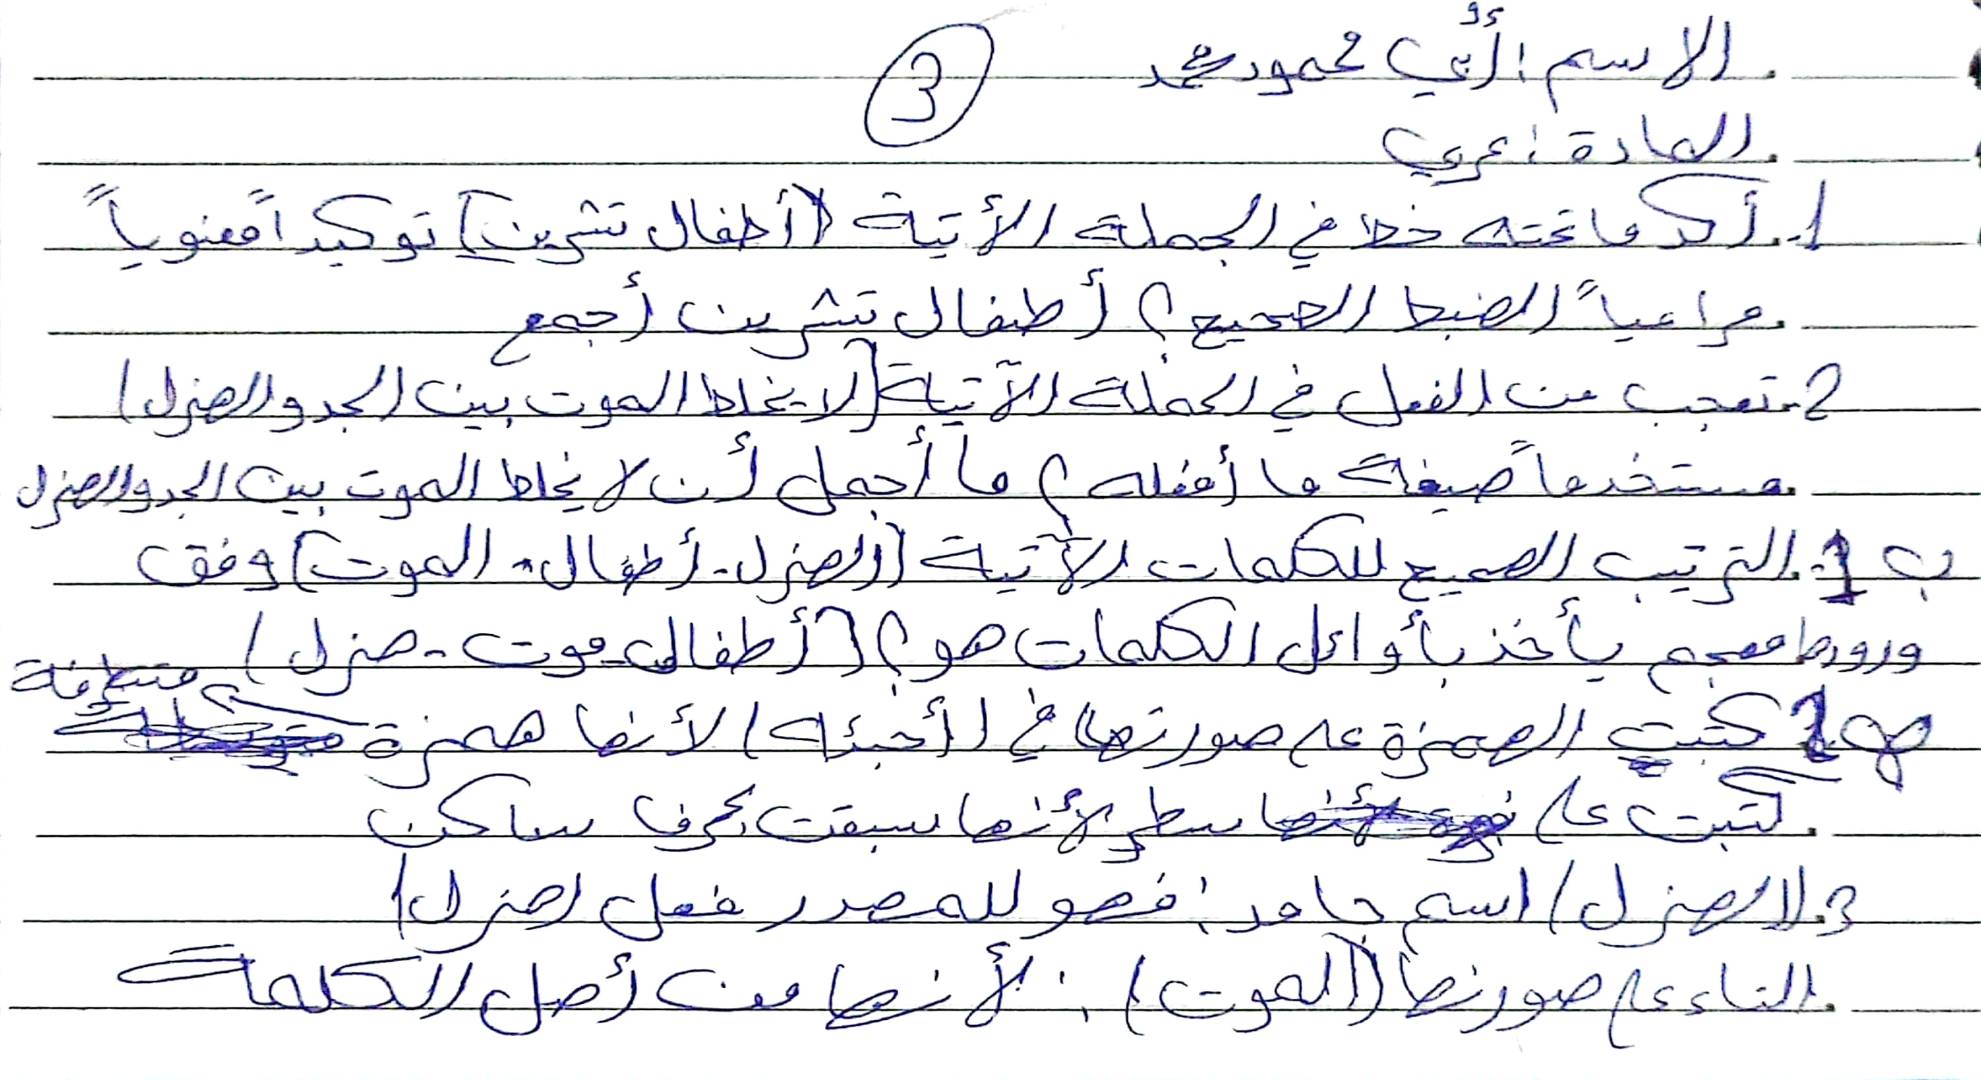 الاسم: أُبي محمود محمد
3
المادة: عربي
1. أكد ما تحته خط في الجملة الأتية (أطفال تشرين) توكيداً معنوياً
مراعياً الضبط الصحيح؟ أطفال تشرين أجمع
2. تعجب من الفعل في الجملة الآتية (لا يخلط الموت بين الجد والهزل)
مستخدماً صيغة ما أفعله؟ ما أجمل أن لا يخلط الموت بين الجد والهزل
ب 1. الترتيب الصحيح للكلمات الآتية (الهزل - أطفال - الموت) وفق
ورودها معجم يأخذ بأوائل الكلمات هو؟ (أطفال - موت - هزل)
2 كتبت الهمزة على صورتها في (أجبئه) لأنها همزة متطرفة
كتبت على سطر لأنها سبقت بحرف ساكن
3. (الهزل) اسم جامد: فهو للمصدر فعل (هزل)
التاء على صورتها (الموت): لأنها من أصل الكلمة